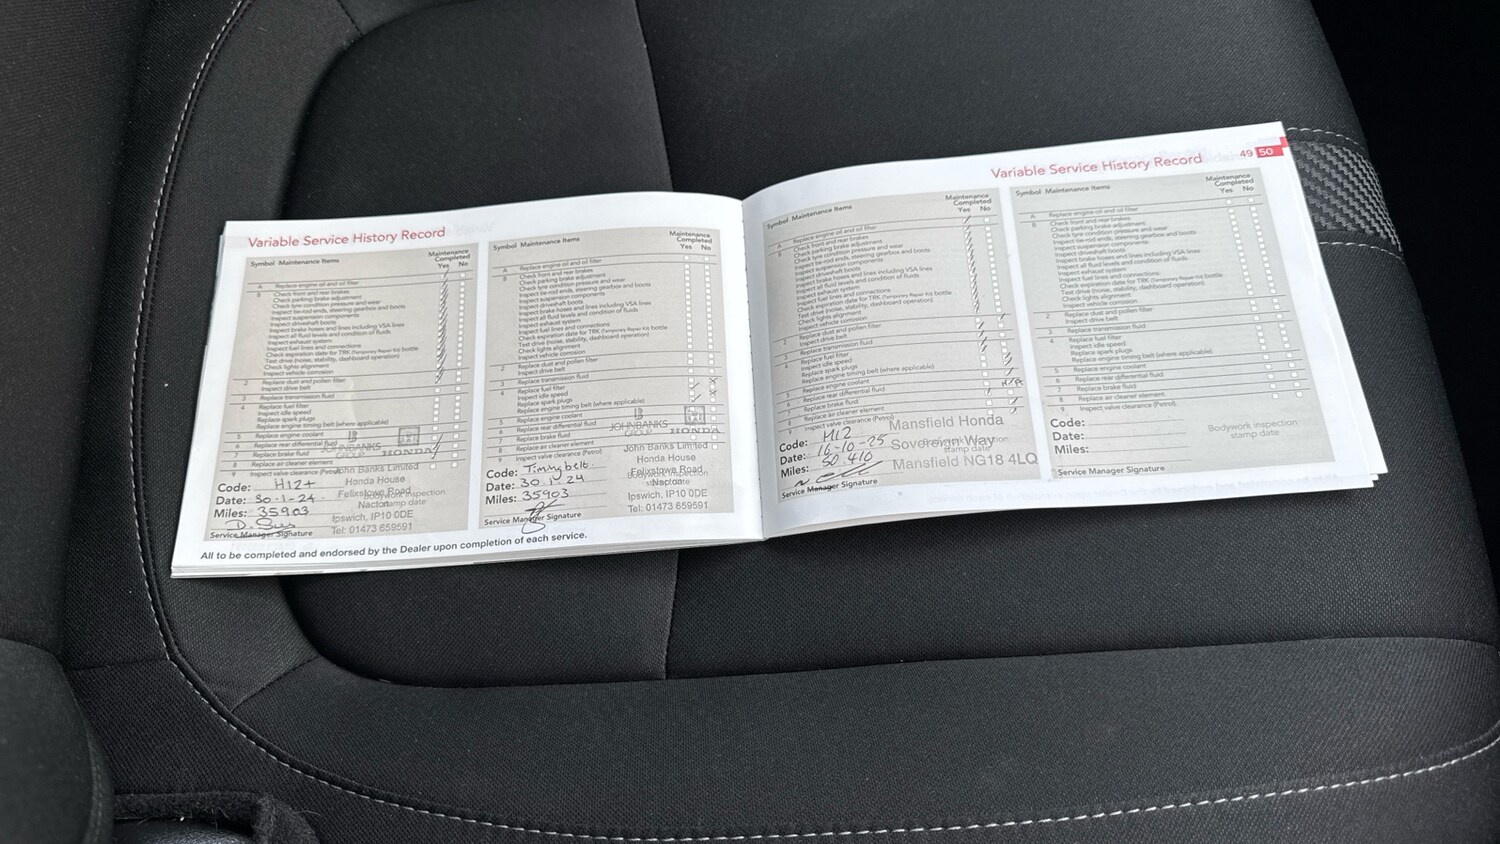 Variable Service History Record
Symbol Maintenance Items Maintenance Completed Yes No
A Replace engine oil and oil filter
B Check front and rear brakes
Check parking brake adjustment
Check tyre condition pressure and wear
Inspect tie-rod ends, steering gearbox and boots
Inspect suspension components
Inspect driveshaft boots
Inspect brake hoses and lines including VSA lines
Inspect all fluid levels and condition of fluids
Inspect exhaust system
Inspect fuel lines and connections
Check expiration date for TRK (Temporary Repair Kit) bottle
Test drive (noise, stability, dashboard operation)
Check lights alignment
Inspect vehicle corrosion
2 Replace dust and pollen filter
Inspect drive belt
3 Replace transmission fluid
4 Replace fuel filter
Inspect idle speed
Replace spark plugs
Replace engine timing belt (where applicable)
5 Replace engine coolant
6 Replace rear differential fluid
7 Replace brake fluid
8 Replace air cleaner element
9 Inspect valve clearance (Petrol)
JOHN BANKS GROUP HONDA
John Banks Limited
Honda House
Felixstowe Road
Nacton
Ipswich, IP10 0DE
Tel: 01473 659591
Code: H12+
Date: 30-1-24
Miles: 35903
Service Manager Signature
All to be completed and endorsed by the Dealer upon completion of each service.
Symbol Maintenance Items Maintenance Completed Yes No
A Replace engine oil and oil filter
B Check front and rear brakes
Check parking brake adjustment
Check tyre condition pressure and wear
Inspect tie-rod ends, steering gearbox and boots
Inspect suspension components
Inspect driveshaft boots
Inspect brake hoses and lines including VSA lines
Inspect all fluid levels and condition of fluids
Inspect exhaust system
Inspect fuel lines and connections
Check expiration date for TRK (Temporary Repair Kit) bottle
Test drive (noise, stability, dashboard operation)
Check lights alignment
Inspect vehicle corrosion
2 Replace dust and pollen filter
Inspect drive belt
3 Replace transmission fluid
4 Replace fuel filter
Inspect idle speed
Replace spark plugs
Replace engine timing belt (where applicable)
5 Replace engine coolant
6 Replace rear differential fluid
7 Replace brake fluid
8 Replace air cleaner element
9 Inspect valve clearance (Petrol)
JOHN BANKS GROUP HONDA
John Banks Limited
Honda House
Felixstowe Road
Nacton
Ipswich, IP10 0DE
Tel: 01473 659591
Code: Timing belt.
Date: 30.1.24
Miles: 35903
Service Manager Signature
Variable Service History Record 49 50
Symbol Maintenance Items Maintenance Completed Yes No
A Replace engine oil and oil filter
B Check front and rear brakes
Check parking brake adjustment
Check tyre condition pressure and wear
Inspect tie-rod ends, steering gearbox and boots
Inspect suspension components
Inspect driveshaft boots
Inspect brake hoses and lines including VSA lines
Inspect all fluid levels and condition of fluids
Inspect exhaust system
Inspect fuel lines and connections
Check expiration date for TRK (Temporary Repair Kit) bottle
Test drive (noise, stability, dashboard operation)
Check lights alignment
Inspect vehicle corrosion
2 Replace dust and pollen filter
Inspect drive belt
3 Replace transmission fluid
4 Replace fuel filter
Inspect idle speed
Replace spark plugs
Replace engine timing belt (where applicable)
5 Replace engine coolant
6 Replace rear differential fluid N/A
7 Replace brake fluid
8 Replace air cleaner element
9 Inspect valve clearance (Petrol)
Mansfield Honda
Sovereign Way
Mansfield NG18 4LQ
Code: H12
Date: 16-10-25
Miles: 50.410
Service Manager Signature
Symbol Maintenance Items Maintenance Completed Yes No
A Replace engine oil and oil filter
B Check front and rear brakes
Check parking brake adjustment
Check tyre condition pressure and wear
Inspect tie-rod ends, steering gearbox and boots
Inspect suspension components
Inspect driveshaft boots
Inspect brake hoses and lines including VSA lines
Inspect all fluid levels and condition of fluids
Inspect exhaust system
Inspect fuel lines and connections
Check expiration date for TRK (Temporary Repair Kit) bottle
Test drive (noise, stability, dashboard operation)
Check lights alignment
Inspect vehicle corrosion
2 Replace dust and pollen filter
Inspect drive belt
3 Replace transmission fluid
4 Replace fuel filter
Inspect idle speed
Replace spark plugs
Replace engine timing belt (where applicable)
5 Replace engine coolant
6 Replace rear differential fluid
7 Replace brake fluid
8 Replace air cleaner element
9 Inspect valve clearance (Petrol)
Code:
Date:
Miles:
Bodywork inspection
stamp date
Service Manager Signature